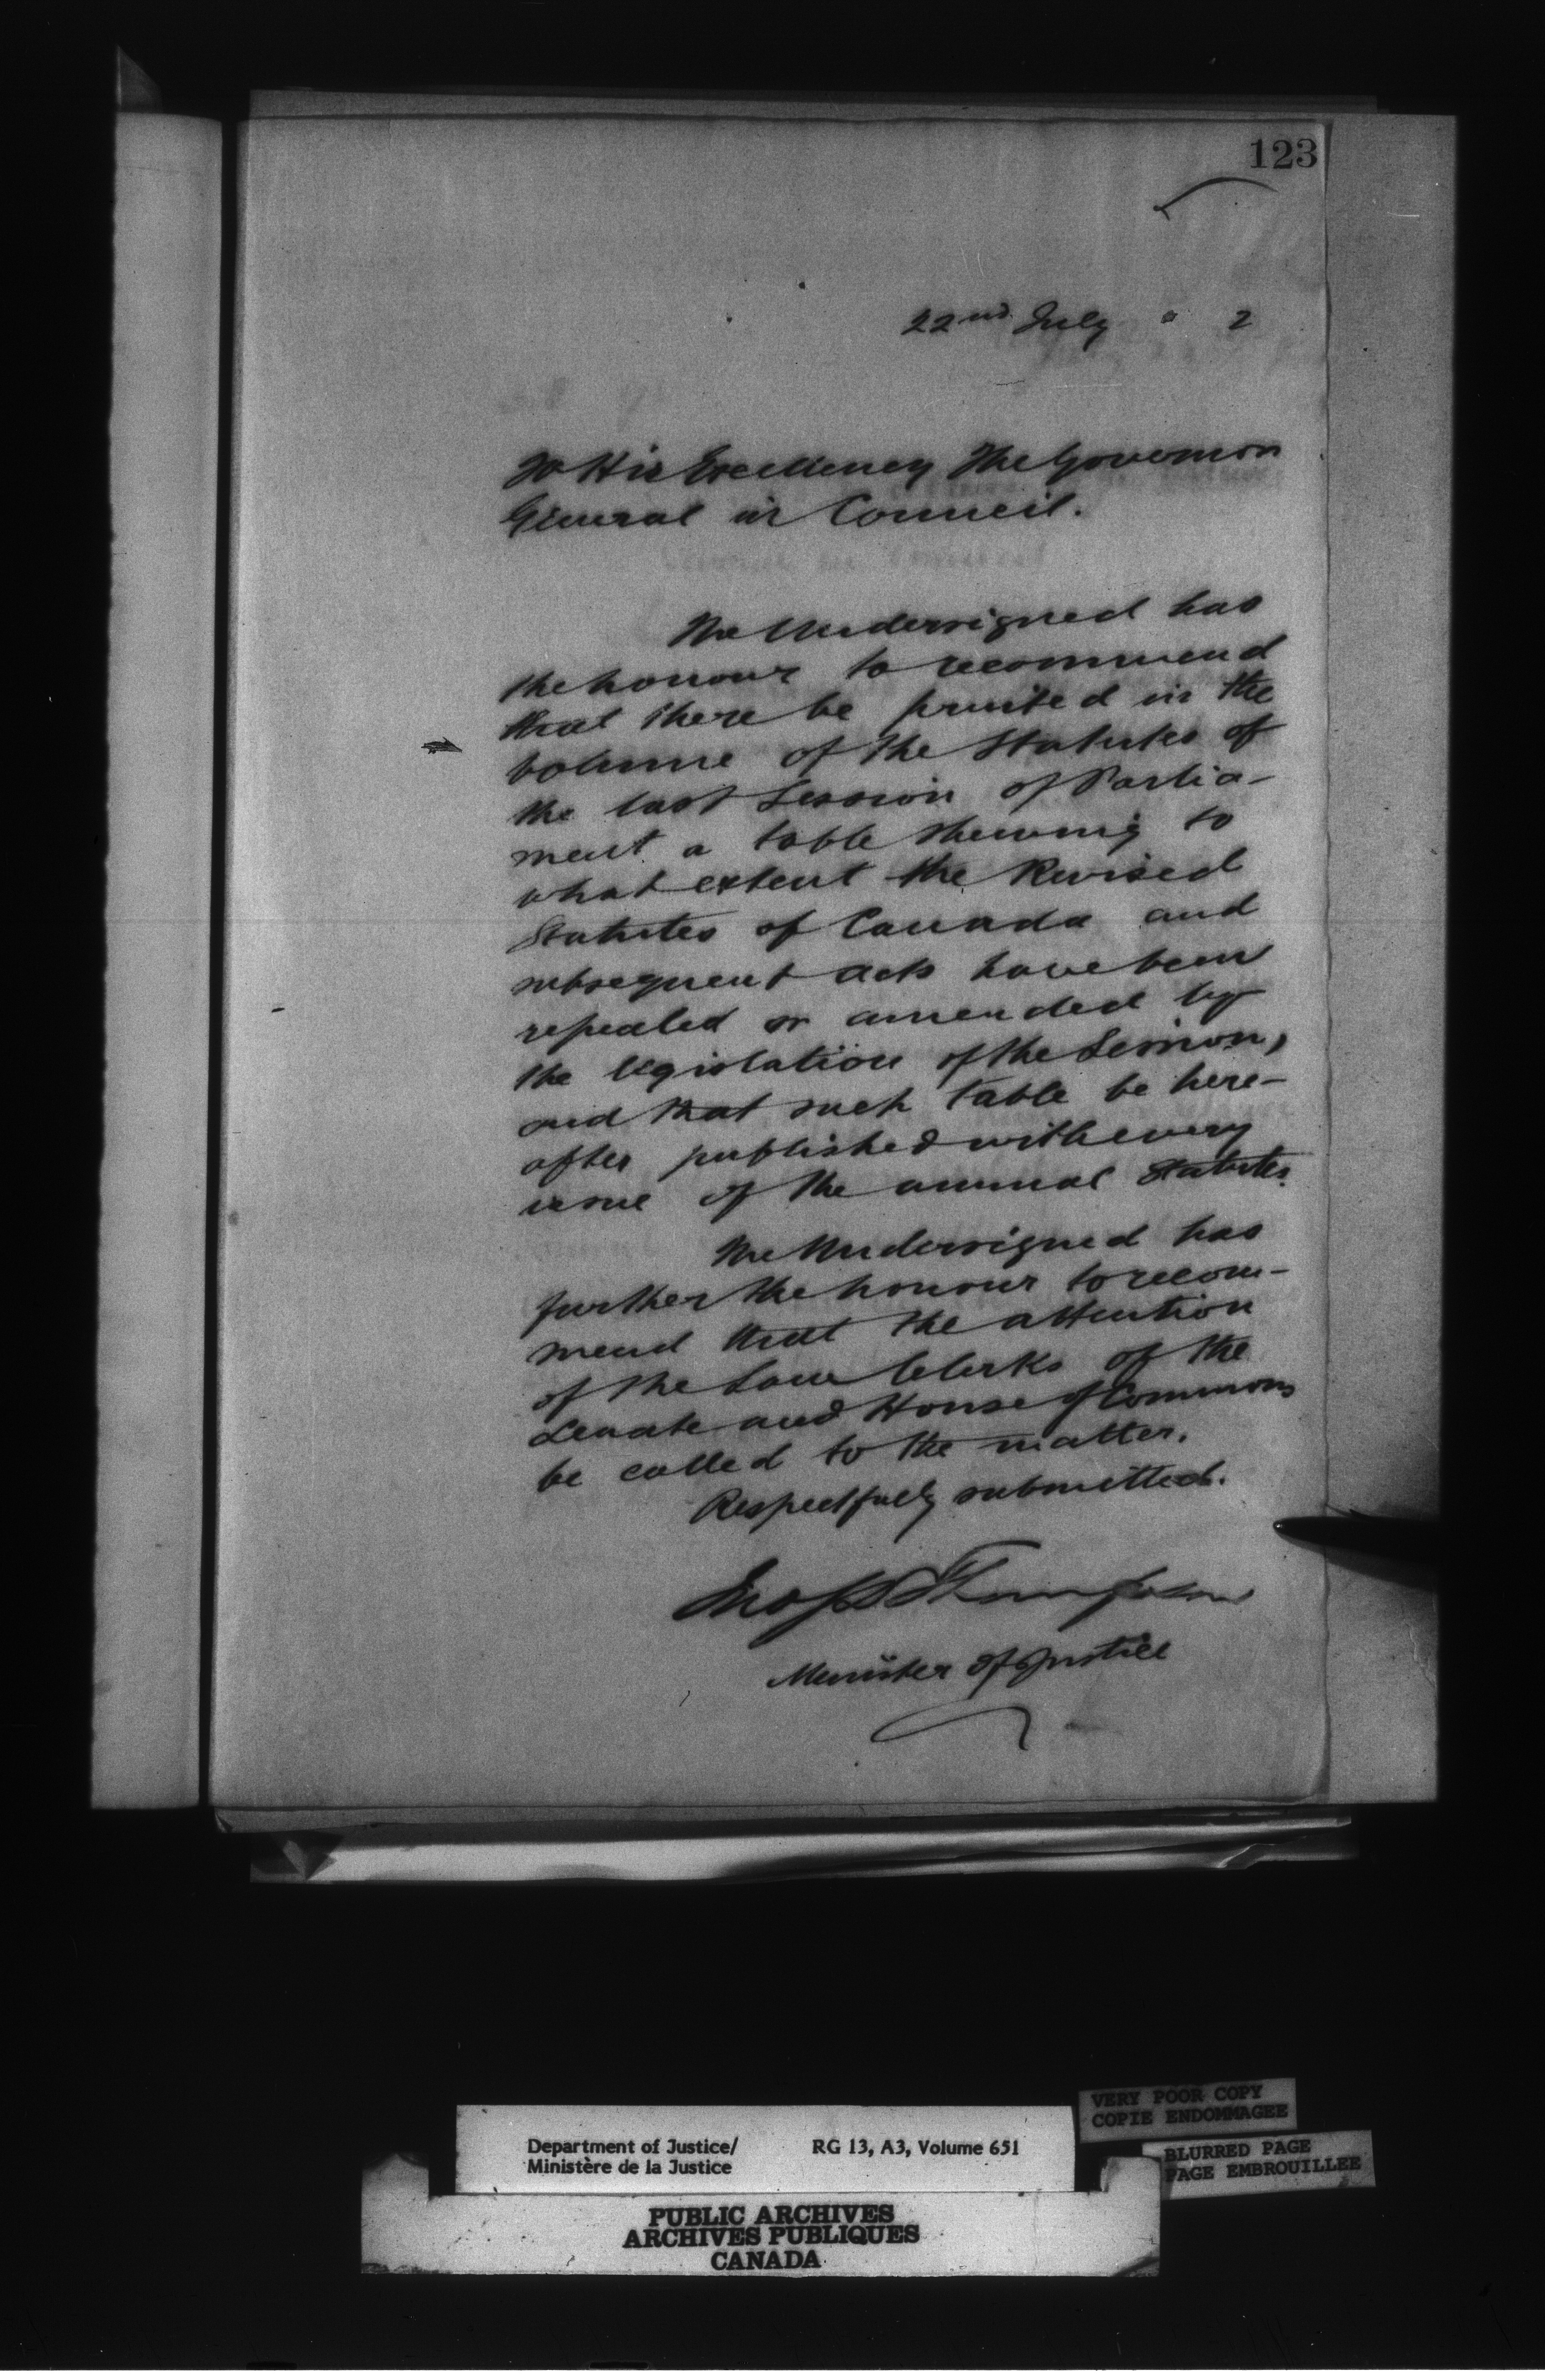 123
22nd July 2
To His Excellency The Governor
General in Council.
The Undersigned has
the honour to recommend
that there be printed in the
volume of the Statutes of
the last Session of Parlia-
ment a table shewing to
what extent the Revised
Statutes of Canada and
subsequent acts have been
repealed or amended by
the legislation of the Session,
and that such table be here-
after published with every
issue of the annual Statutes.
The Undersigned has
further the honour to recom-
mend that the attention
of the Law Clerks of the
Senate and House of Commons
be called to the matter.
Respectfully submitted.
Jno S D Thompson
Minister of Justice
VERY POOR COPY
COPIE ENDOMMAGEE
Department of Justice/ RG 13, A3, Volume 651
Ministère de la Justice
BLURRED PAGE
PAGE EMBROUILLEE
PUBLIC ARCHIVES
ARCHIVES PUBLIQUES
CANADA